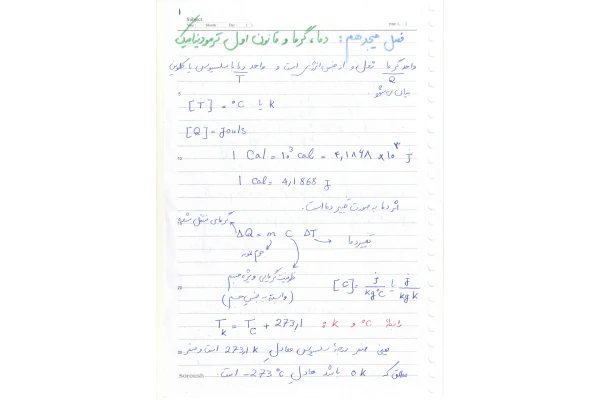 1
Subject
فصل هیجدهم: دما، گرما و قانون اول ترمودینامیک
واحد گرما ژول و از جنس انرژی است و واحد دما سلسیوس یا کلوین
Q T
بیان می شود.
5
[T] = °C یا k
[Q] = Jouls
10
1 Cal = 10³ cal = 4,1868 × 10³ J
1 cal = 4,1868 J
اثر دما به صورت تغییر دما است.
گرمای منتقل شده
ΔQ = m C ΔT
تغییر دما
جرم
ظرفیت گرمایی ویژه جسم
(وابسته به جنس جسم)
[C] = J/kg°C یا J/kg k
20
رابطه °C و k :
T_k = T_C + 273,1
یعنی صفر درجه سلسیوس معادل 273,1 k است و صفر
مطلق که 0 k باشد معادل -273 °C است.